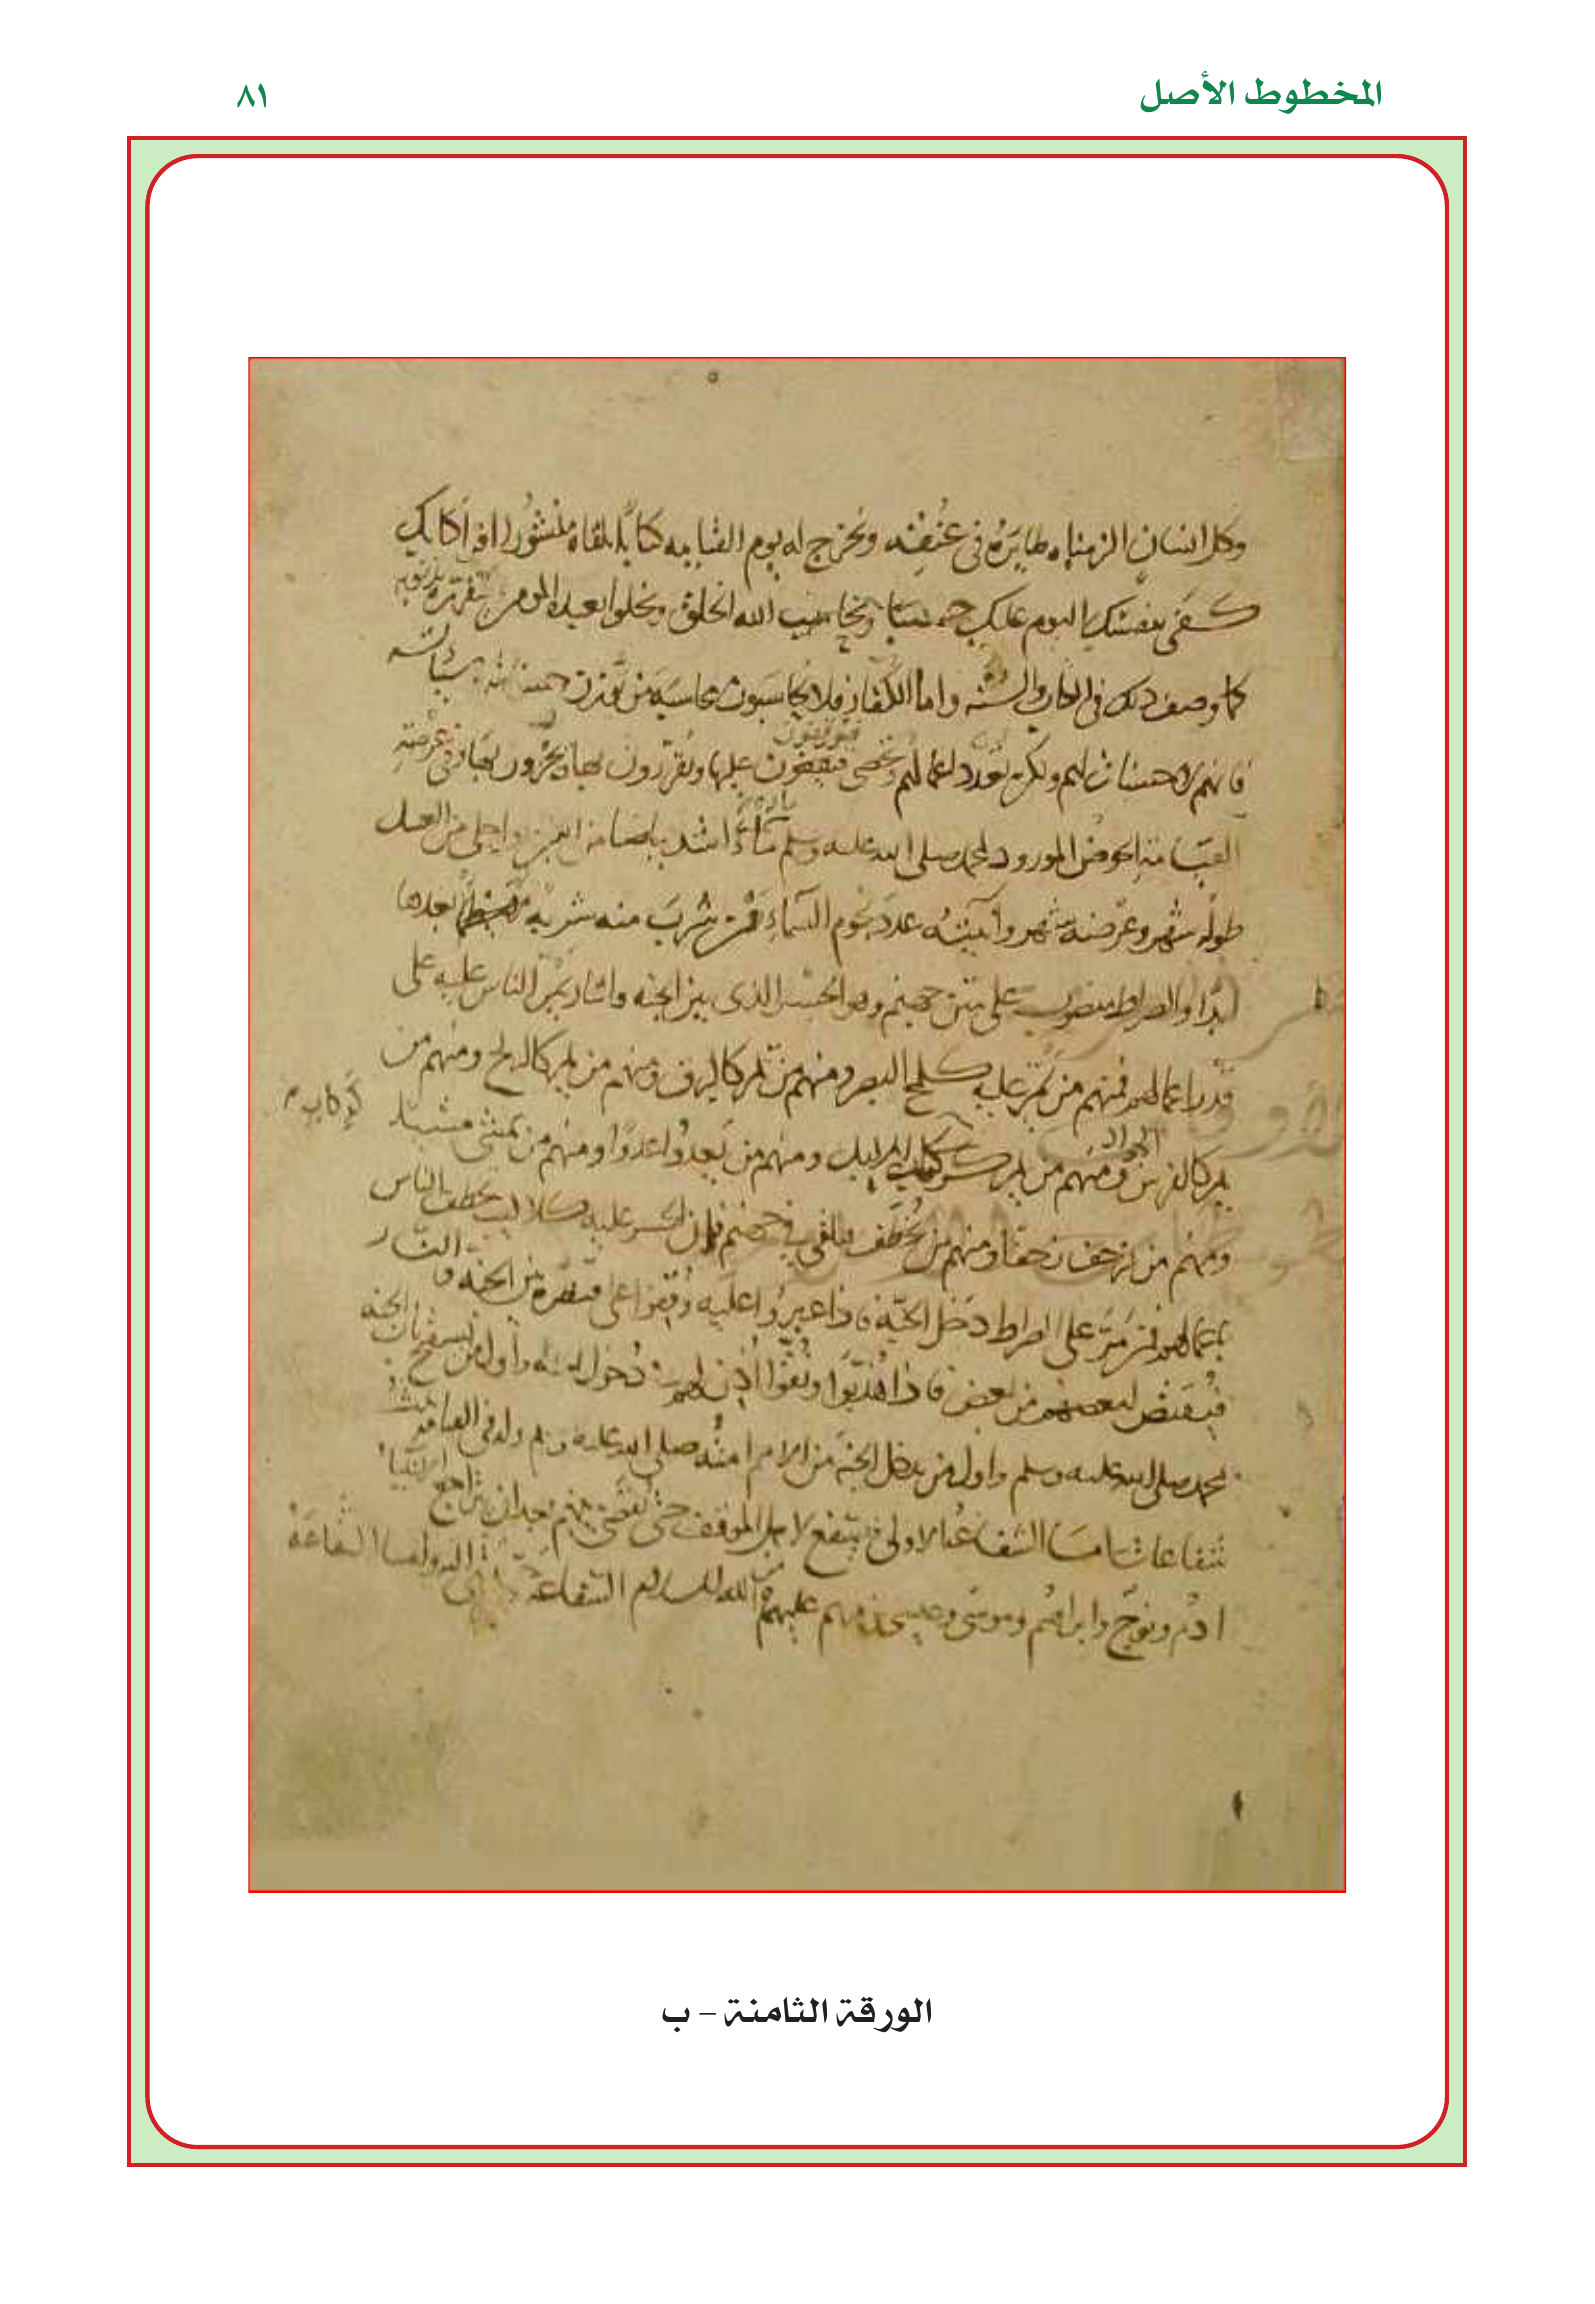 المخطوط الأصل
٨١
وكل انسان الزمناه طايره في عنقه ونخرج له يوم القيامه كتابا يلقاه منشورا اقرا كتابك
كفى بنفسك اليوم عليك حسيبا ويحاسب الله الخلق ويخلوا بعبده المومن يقرره بذنوبه
كما وصف ذلك في الكتاب والسنه واما الكفار فلا يحاسبون محاسبه من توزن حسناته وسيئاته
فانهم لا حسنات لهم ولكن تعدد اعمالهم وتحصى فيقفون عليها ويقررون بها ويجزون بها وفي عرصة
فيوقفون
القيامة الحوض المورود لمحمد صلى الله عليه وسلم ماؤه اشد بياضا من اللبن واحلى من العسل
طوله شهر وعرضه شهر وآنيته عدد نجوم السماء فمن شرب منه شربه لم يظما بعدها
ابدا والصراط منصوب على متن جهنم وهو الجسر الذي بين الجنه والنار يمر الناس عليه على
قدر اعمالهم فمنهم من يمر عليه كلمح البصر ومنهم من يمر كالبرق ومنهم من يمر كالريح ومنهم من
يمر كالفرس الجواد ومنهم من يمر كركاب الابل ومنهم من يعدوا عدوا ومنهم من يمشي مشيا
كركاب
ومنهم من يزحف زحفا ومنهم من يخطف فيلقى في جهنم فان الجسر عليه كلاليب تخطف الناس
باعمالهم فمن مر على الصراط دخل الجنة فاذا عبروا عليه وقفوا على قنطرة بين الجنه والنار
فيقتص لبعضهم من بعض فاذا هذبوا ونقوا أذن لهم في دخول الجنه وأول من يستفتح باب الجنه
محمد صلى الله عليه وسلم واول من يدخل الجنة من الامم امته صلى الله عليه وسلم وله في القيامه ثلث
شفاعات اما الشفاعة الاولى فيشفع لاهل الموقف حتى يقضى بينهم بعد ان يتراجع الانبياء
ادم ونوح وابراهيم وموسى وعيسى بن مريم عليهم من الله السلام الشفاعة
الورقة الثامنة – ب